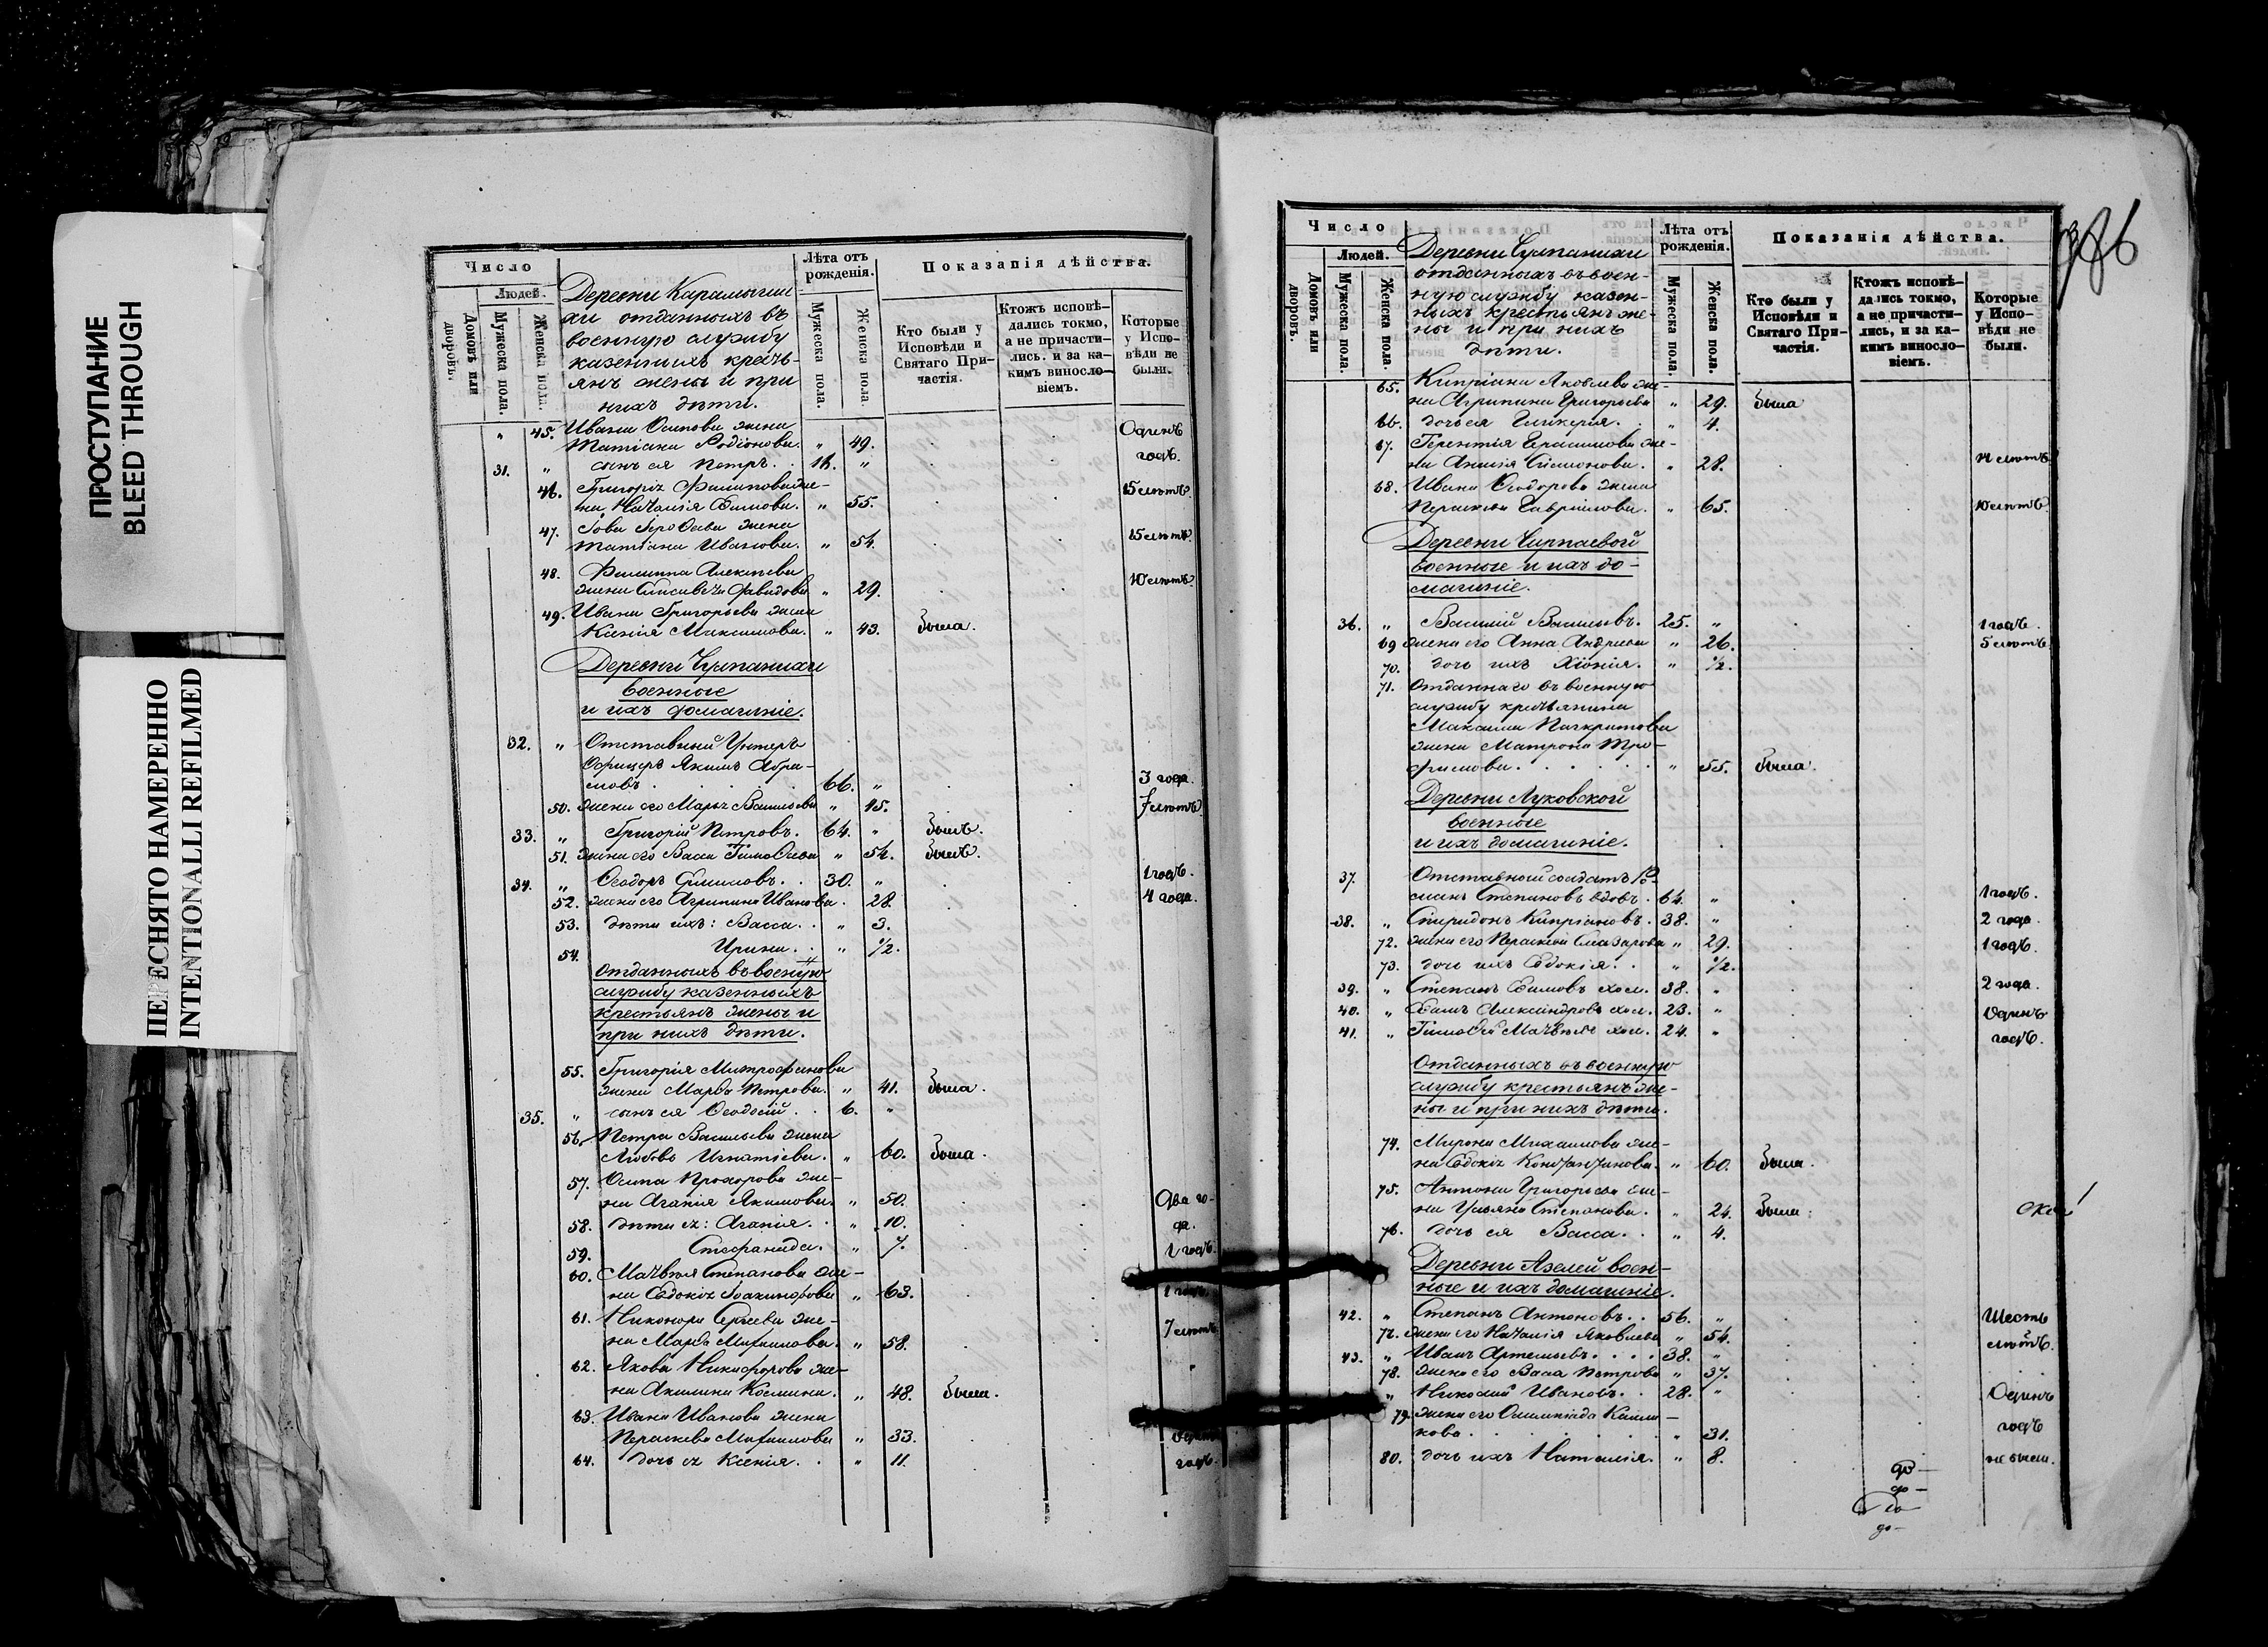 ПРОСТУПАНИЕ
BLEED THROUGH
ПЕРЕСНЯТО НАМЕРЕННО
INTENTIONALLI REFILMED
Число
Людей.
Домовъ или дворовъ.
Мужеска пола.
Женска пола.
Деревни
отданныхъ въ
военную службу
казенныхъ кресть-
янъ жены и при
нихъ дѣти.
Лѣта отъ рожденія.
Мужеска пола.
Женска пола.
Показанія дѣйства.
Кто были у Исповѣди и Святаго При-частія.
Ктожъ исповѣ-дались токмо, а не причасти-лись. и за ка-кимъ винословіемъ.
Которые у Испо-вѣди не были.
45. Ивана Осипова жена
Татіана Родіонова. „ 49. Одинъ
31. „ сынъ ея Петръ. . „ годъ.
46. Григорія Филипова же-
на Наталія „ 55. 15 лѣтъ.
47. жена
Татіана Иванова. „ 54. 15 лѣтъ.
48. Филиппа Алексѣева
жена „ 29. 10 лѣтъ.
49. Ивана Григорьева жена
Ксенія Максимова. „ 43. была.
Деревни
военные
и ихъ домашніе.
32. „ Отставный Унтеръ
Офицеръ Якимъ Абра-
мовъ . 66. „ 3 года.
50. жена его Марья Васильева „ 45. 7 лѣтъ
33. „ Григорій Петровъ. 64. „ былъ.
51. жена его Васса Тимоѳеева „ 54. былъ.
34. „ Ѳеодоръ . 30. „ 1 годъ.
52. жена его Агрипина Иванова. 28. 4 года.
53. дѣти ихъ: Васса. . „ 3.
54. Ирина. . „ 1/2.
Отданныхъ въ военную
службу казенныхъ
крестьянъ жены и
при нихъ дѣти.
55. Григорія Митрофанова
жена Марѳа Петрова. „ 41. была.
35. „ сынъ ея Ѳеодосій. . 6. „
56. Петра Васильева жена
Любовь Игнатіева. „ 60. была.
57. Осипа Прохорова же-
на Агапія Якимова. „ 50. Два го-
58. дѣти ея: Агапія. . „ 10. да.
59. Стефанида. „ 7. 1 годъ.
60. Матвѣя Степанова же-
на Евдокія „ 63. 1 годъ.
61. Никонора Сергѣева же-
на Марѳа „ 58. 7 лѣтъ
62. Якова Никифорова же-
на Акилина Космина. „ 48. была.
63. Ивана Иванова жена
Параскева „ 33. Одинъ
64. дочь ея Ксенія. . „ 11. годъ.
Число
Людей.
Домовъ или дворовъ.
Мужеска пола.
Женска пола.
Деревни
отданныхъ въ воен-
ную службу казен-
ныхъ крестьянъ же-
ны и при нихъ
дѣти.
Лѣта отъ рожденія.
Мужеска пола.
Женска пола.
Показанія дѣйства.
Кто были у Исповѣди и Святаго При-частія.
Ктожъ исповѣ-дались токмо, а не причасти-лись, и за ка-кимъ винословіемъ.
Которые у Испо-вѣди не были.
65. Кипріана Яковлева же-
на Агрипина Григорьева „ 29. была
66. дочь ея Гликерія. . „ 4.
67. Терентія Герасимова же-
на „ 28. 4 лѣтъ
68. Ивана Ѳеодорова жена
Параскева Гавріилова. „ 65. 10 лѣтъ.
Деревни
военные и ихъ до-
машніе.
36. „ Василій Васильевъ. 25. „ 1 годъ.
69 жена его Анна Андреева „ 26. 5 лѣтъ.
70. дочь ихъ Хіонія. „ 1/2.
71. Отданнаго въ военную
службу крестьянина
Максима Панкратова
жена Матрона Тро-
фимова. . . . „ 55. была.
Деревни Луковской
военные
и ихъ домашніе.
37. Отставный солдатъ Ро-
манъ Степановъ вдовъ. 64. „ 1 годъ.
38. „ Спиридонъ Кипріановъ. 38. „ 2 года.
72. жена его Параскева „ 29. 1 годъ.
73. дочь ихъ Евдокія. . „ 1/2.
39. „ Степанъ Ефимовъ хол. 38. „ 2 года.
40. „ Александровъ хол. 23. „ Одинъ
41. „ Тимоѳей Матвѣевъ хол. 24. „ годъ.
Отданныхъ въ военную
службу крестьянъ же-
ны и при нихъ дѣти.
74. Мирона Михаилова же-
на Евдокія Константинова. „ 60. была.
75. Антона Григорьева же-
на Ульяна Степанова. „ 24. была.
76. дочь ея Васса. . „ 4.
Деревни Азелей воен-
ные и ихъ домашніе.
42. „ Степанъ Антоновъ. . 56. „ Шесть
77. жена его Наталія Яковлева „ 54. лѣтъ.
43. „ Иванъ Артемьевъ. . . 38. „
78. жена его Васса Петрова „ 37.
„ Николай Ивановъ. . 28. „ Одинъ
79. жена его Олимпіада
31. годъ
80. дочь ихъ Наталія. „ 8. не была.